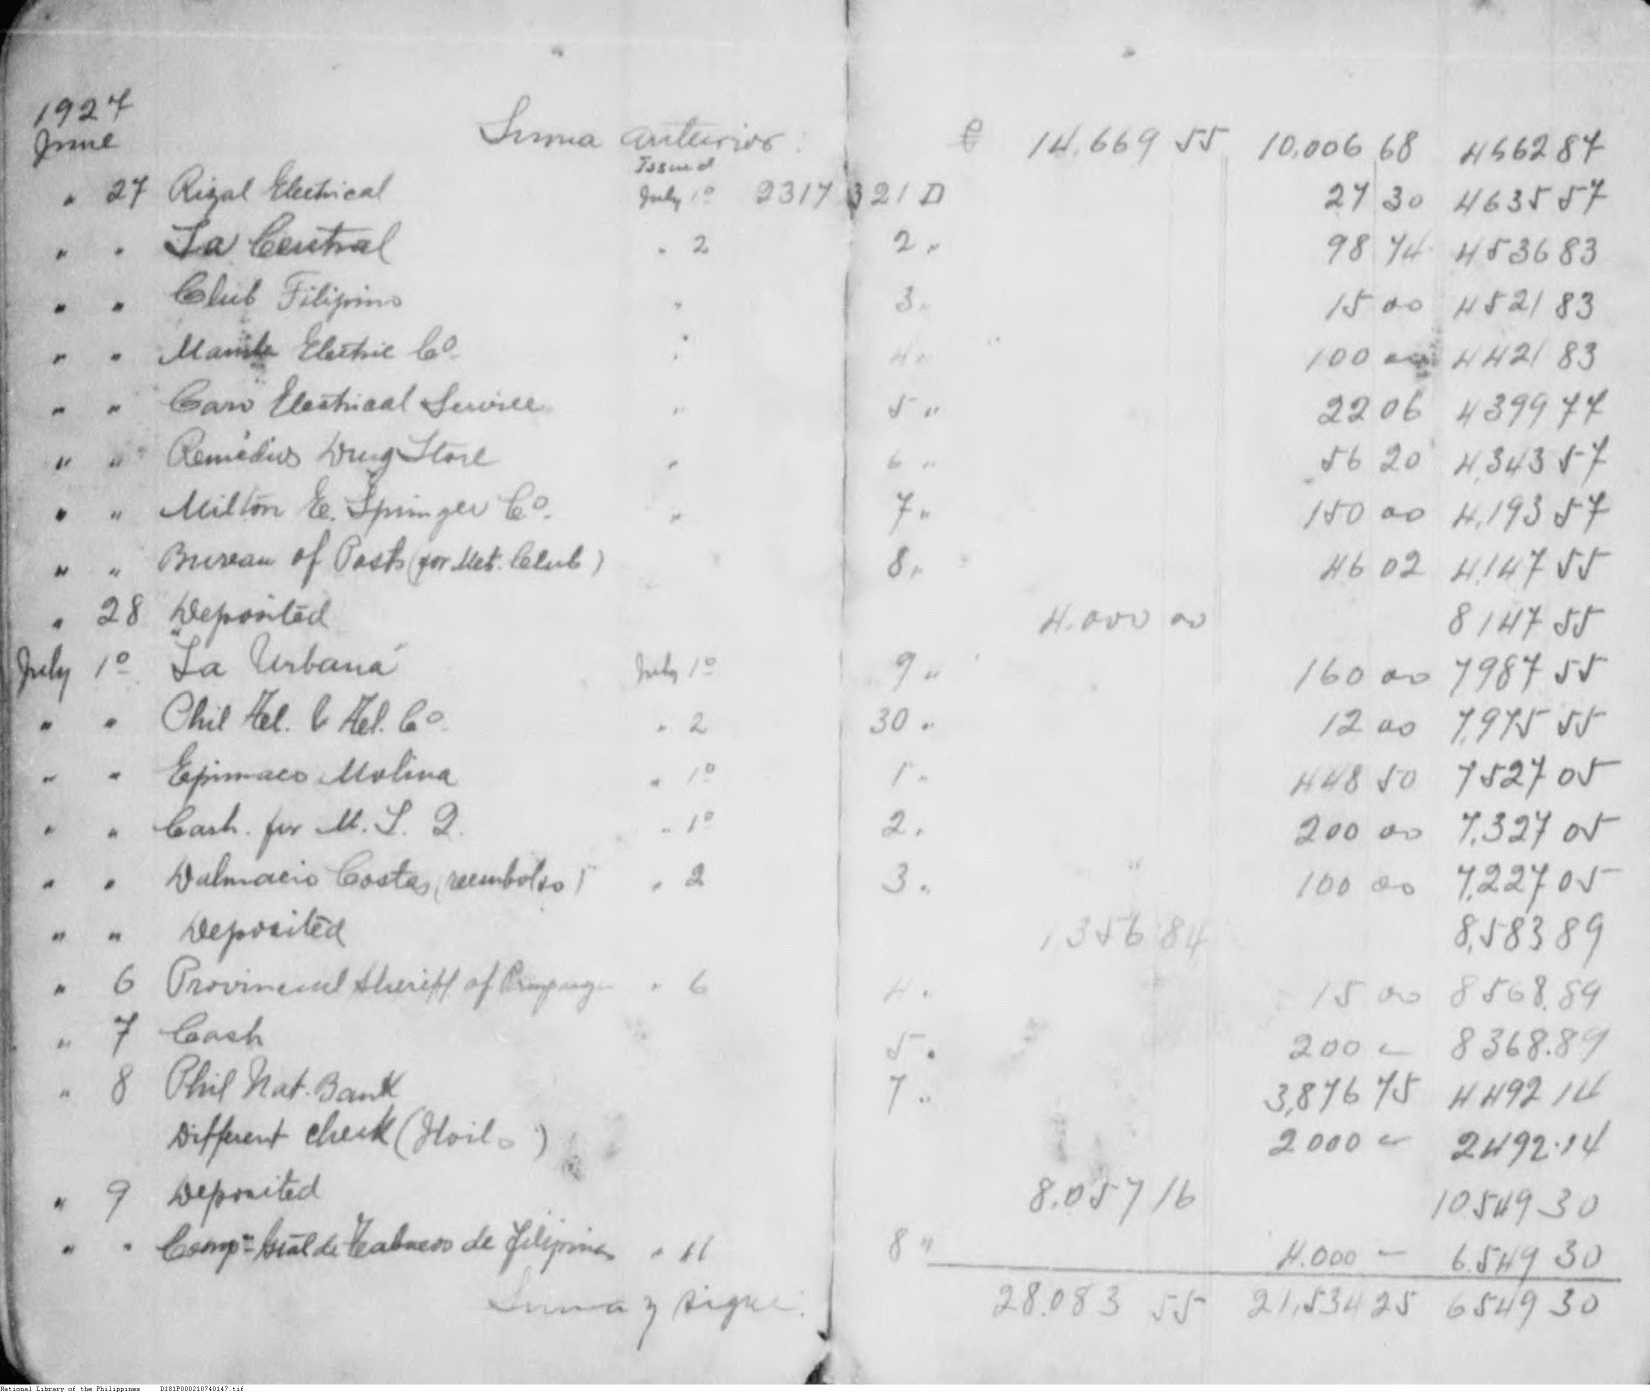 1927
June Suma anterior: ₱ 14.669 55 10,006 68 4662 87
Issued
" 27 Rizal Electrical July 1º 2317321 D 27 30 4635 57
" " La Central " 2 2 " 98 74 4536 83
" " Club Filipino " 3 " 15 00 4521 83
" " Manila Electric Cº. " 4 " 100 00 4421 83
" " Caro Electrical Service " 5 " 22 06 4399 77
" " Remedios Drug Store " 6 " 56 20 4,343 57
" " Milton E. Springer Cº. " 7 " 150 00 4,193 57
" " Bureau of Posts (for Met. Club) 8 " 46 02 4,147 55
" 28 Deposited 4.000 00 8147 55
July 1º La Urbana July 1º 9 " 160 00 7987 55
" " Phil Tel. & Tel. Cº. " 2 30 " 12 00 7,975 55
" " Epimaco Molina " 1º 1 " 448 50 7527 05
" " Cash for M. L. Q. " 1º 2 " 200 00 7,327 05
" " Dalmacio Costas (reembolso) " 2 3 " 100 00 7,227 05
" " Deposited 1356 84 8,583 89
" 6 Provincial Sheriff of " 6 4 " 15 00 8568.89
" 7 Cash 5 " 200 — 8368.89
" 8 Phil Nat. Bank 7 " 3,876 75 4492 14
Different check (Iloilo) 2000 — 2492.14
" 9 Deposited 8.057 16 10549 30
" " Compª Gral de Tabacos de Filipinas " 11 8 " 4.000 — 6.549 30
Suma y sigue: 28.083 55 21,534 25 6549 30
National Library of the Philippines D181P000210740147.tif